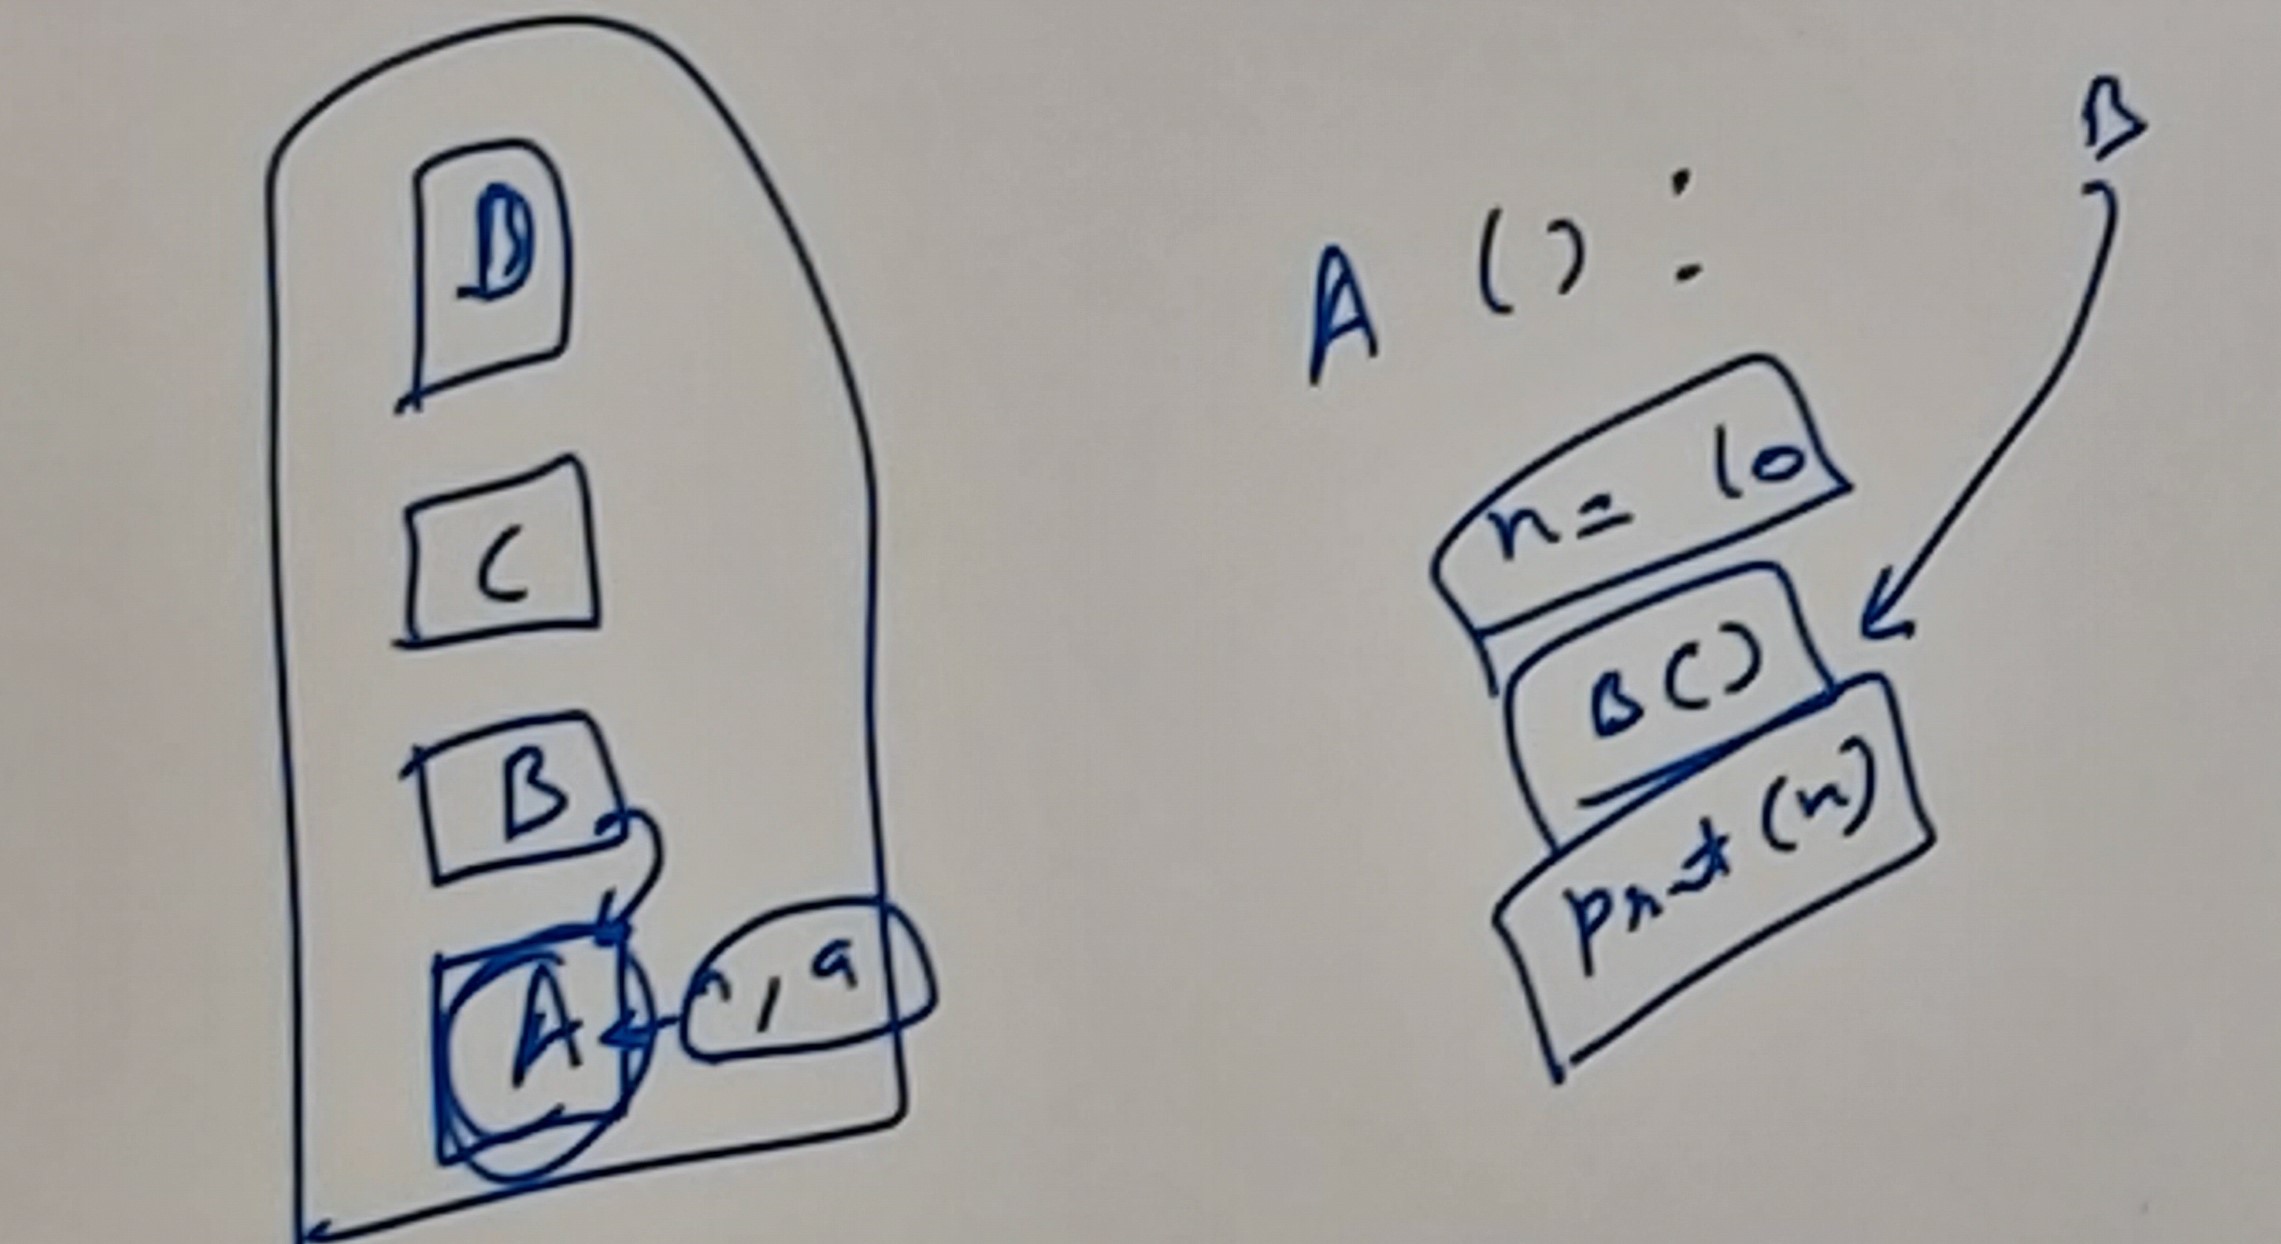 D
C
B
A
n, a
A ( ) :
B
n = 10
B ( )
print (n)